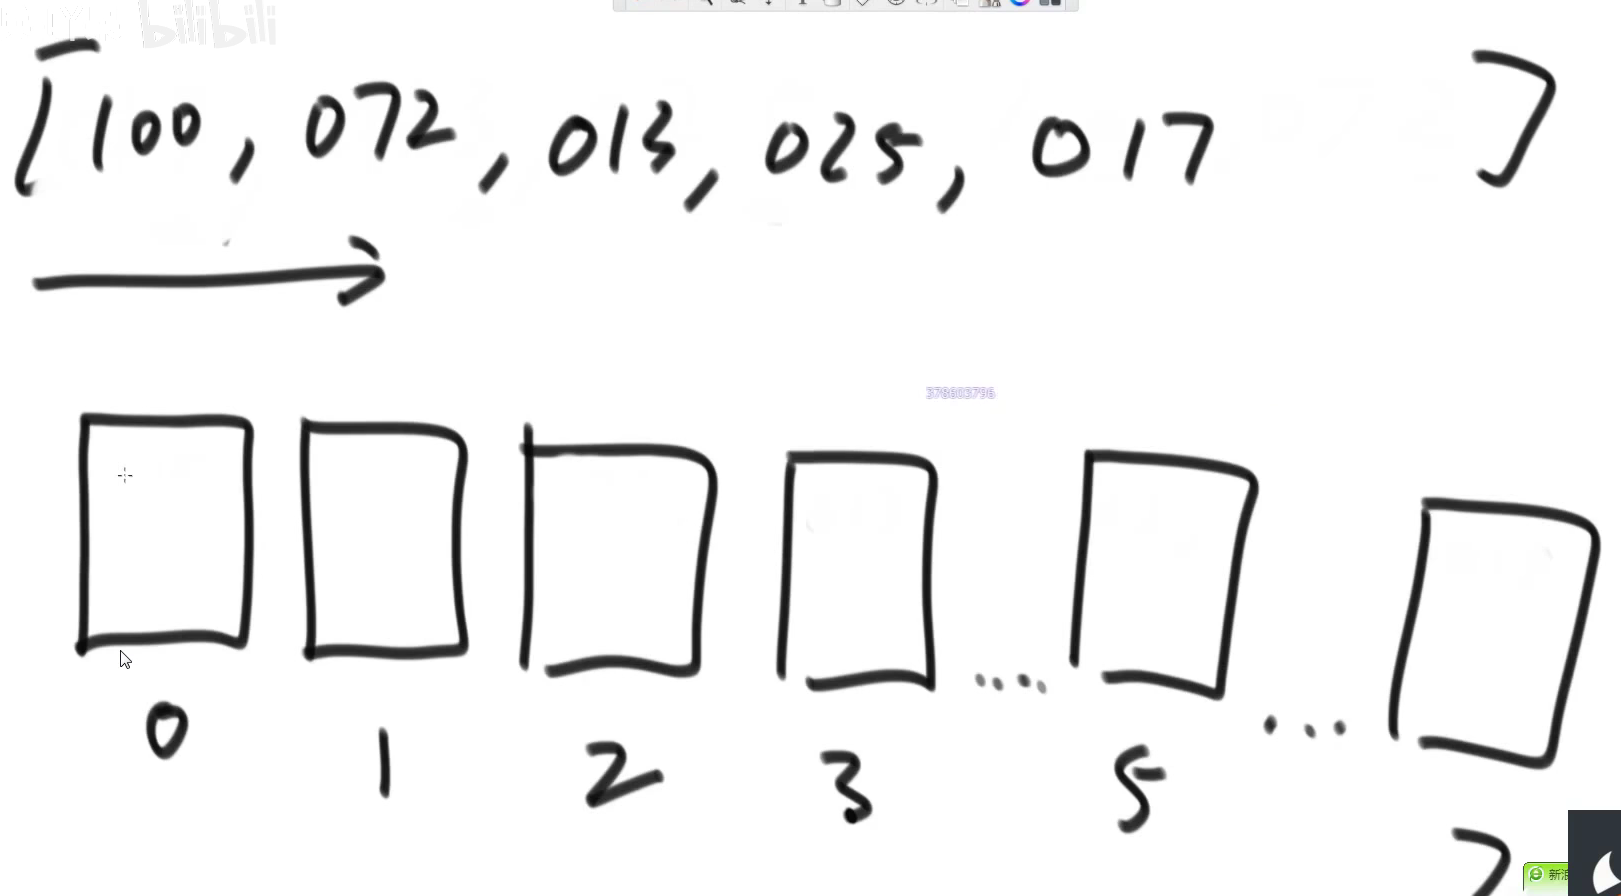 bilibili
[100, 072, 013, 025, 017 ]
378603796
.... ...
0 1 2 3 5 7